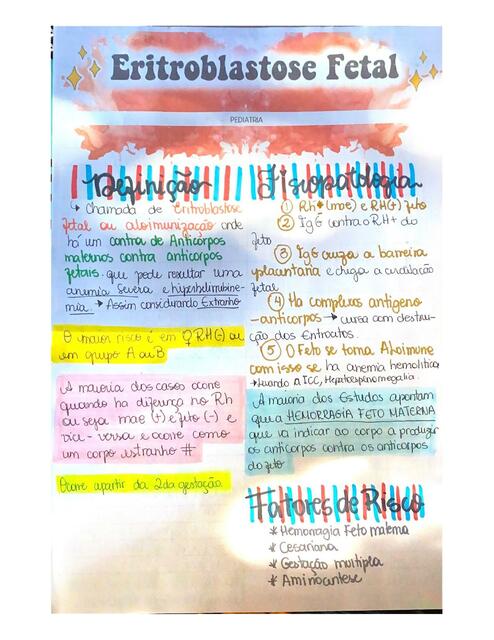 Eritroblastose Fetal
PEDIATRIA
Definição
↳ Chamada de Eritroblastose
fetal ou aloimunização onde
há um contra de Anticorpos
maternos contra anticorpos
fetais. que pode resultar uma
anemia severa e hiperbilirrubine-
mia. → Assim considerando Estranho
O maior risco é em ♀ RH(-) ou
em grupo A ou B
A maioria dos casos ocore
quando ha diferença no Rh
ou seja mãe (+) e feto (-) e
vice-versa e ocore como
um corpo estranho #
Ocore apartir da 2da gestação
Fisiopatologia
① Rh (mãe) e RH(+) feto
② IgG contra o RH+ do
feto
③ IgG cruza a barreira
placentaria e chega a circulação
fetal
④ Ha complexos antigeno
-anticorpos → cursa com destrui-
ção dos Entrocitos.
⑤ O Feto se torna Aloimune
com isso se ha anemia hemolitica
↳ levando a ICC, Hepatoesplnomegalia
A maioria dos Estudos apontam
que a HEMORRAGIA FETO MATERNA
que vai indicar ao corpo a produzir
os anticorpos contra os anticorpos
do feto
Fatores de Risco
* Hemorragia Feto materna
* Cesariana
* Gestação multipla
* Aminocintese